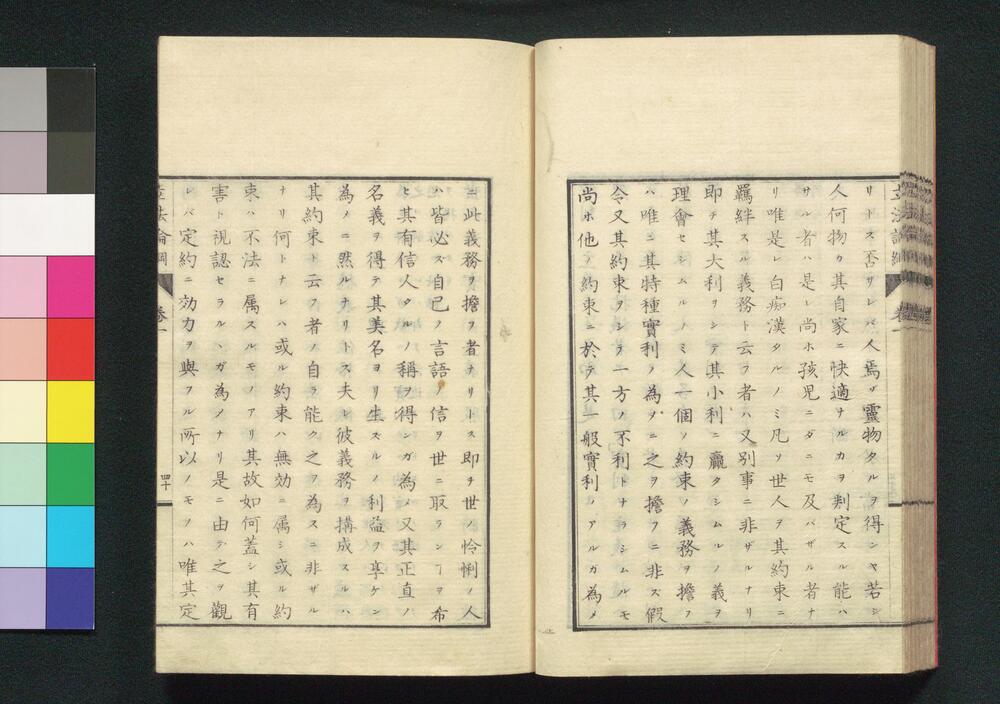 リトス否サレバ人焉ザ靈物タルヲ得ンヤ若シ
人何物カ其自家ニ快適ナルカヲ判定スル能ハ
サル者ハ是レ尚ホ孩児ニダニモ及バザル者ナ
リ唯是レ白痴漢タルノミ凡ソ世人ヲ其約束ニ
羈絆スル義務ト云フ者ハ又別事ニ非ザルナリ
即チ其大利ヲシテ其小利ニ贏タシムルノ義ヲ
理會セシムルノミ人一個ノ約束ノ義務ヲ擔フ
ハ唯ニ其特種實利ノ為メニ之ヲ擔フニ非ズ假
令又其約束ヲシテ一方ノ不利トナラシムルモ
尚ホ他ノ約束ニ於テ其一般實利ノアルガ為メ
ニ此義務ヲ擔フ者ナリトス即チ世ノ怜悧ノ人
ハ皆必ズ自己ノ言語ノ信ヲ世ニ取ランヿヲ希
ヒ其有信人タルノ稱ヲ得ンガ為メ又其正直ノ
名義ヲ得テ其美名ヨリ生ズルノ利益ヲ享ケン
為メニ然ルナリトス夫レ彼義務ヲ搆成スルハ
其約束ト云フ者ノ自ラ能ク之ヲ為スニ非ザル
ナリ何トナレハ或ル約束ハ無効ニ属シ或ル約
束ハ不法ニ属スルモノアリ其故如何蓋シ其有
害ト視認セラルヽガ為メノナリ是ニ由テ之ヲ觀
レバ定約ニ効力ヲ與フル所以ノモノハ唯其定
立法論綱
卷一
四十